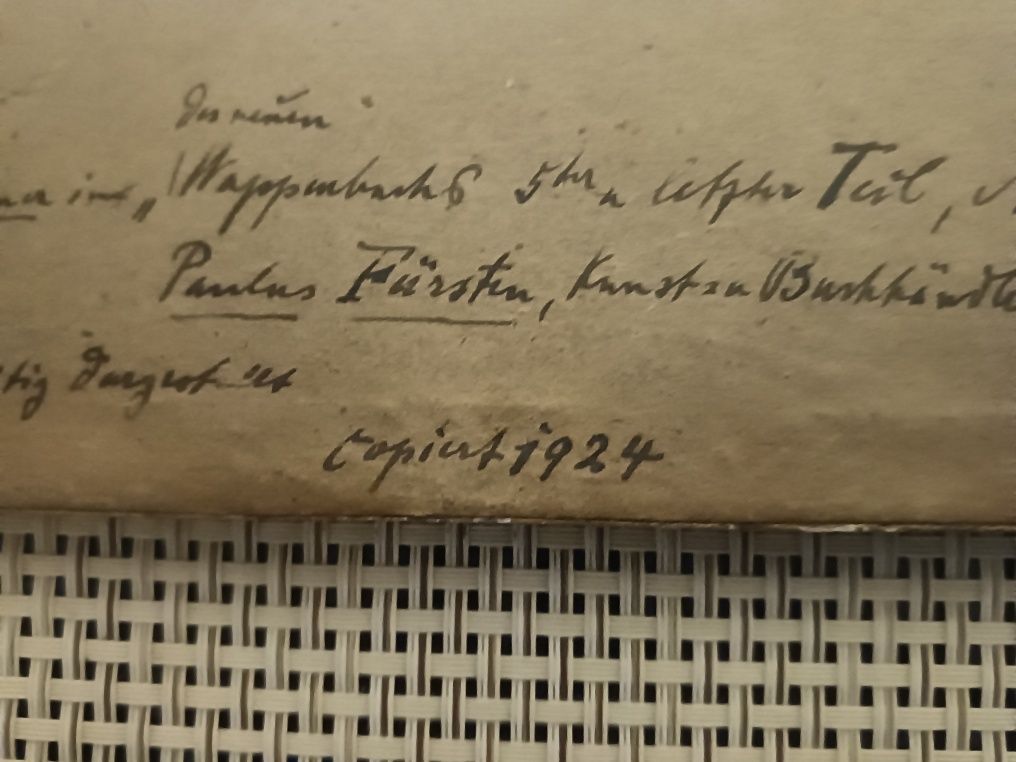 des neuen
im „Wappenbuchs 5ter u letzter Teil,
Paulus Fürsten, Kunst= u Buchhändle
copiert 1924